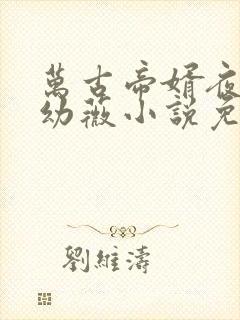 萬古帝婿夜
幼薇小說免
劉維濤